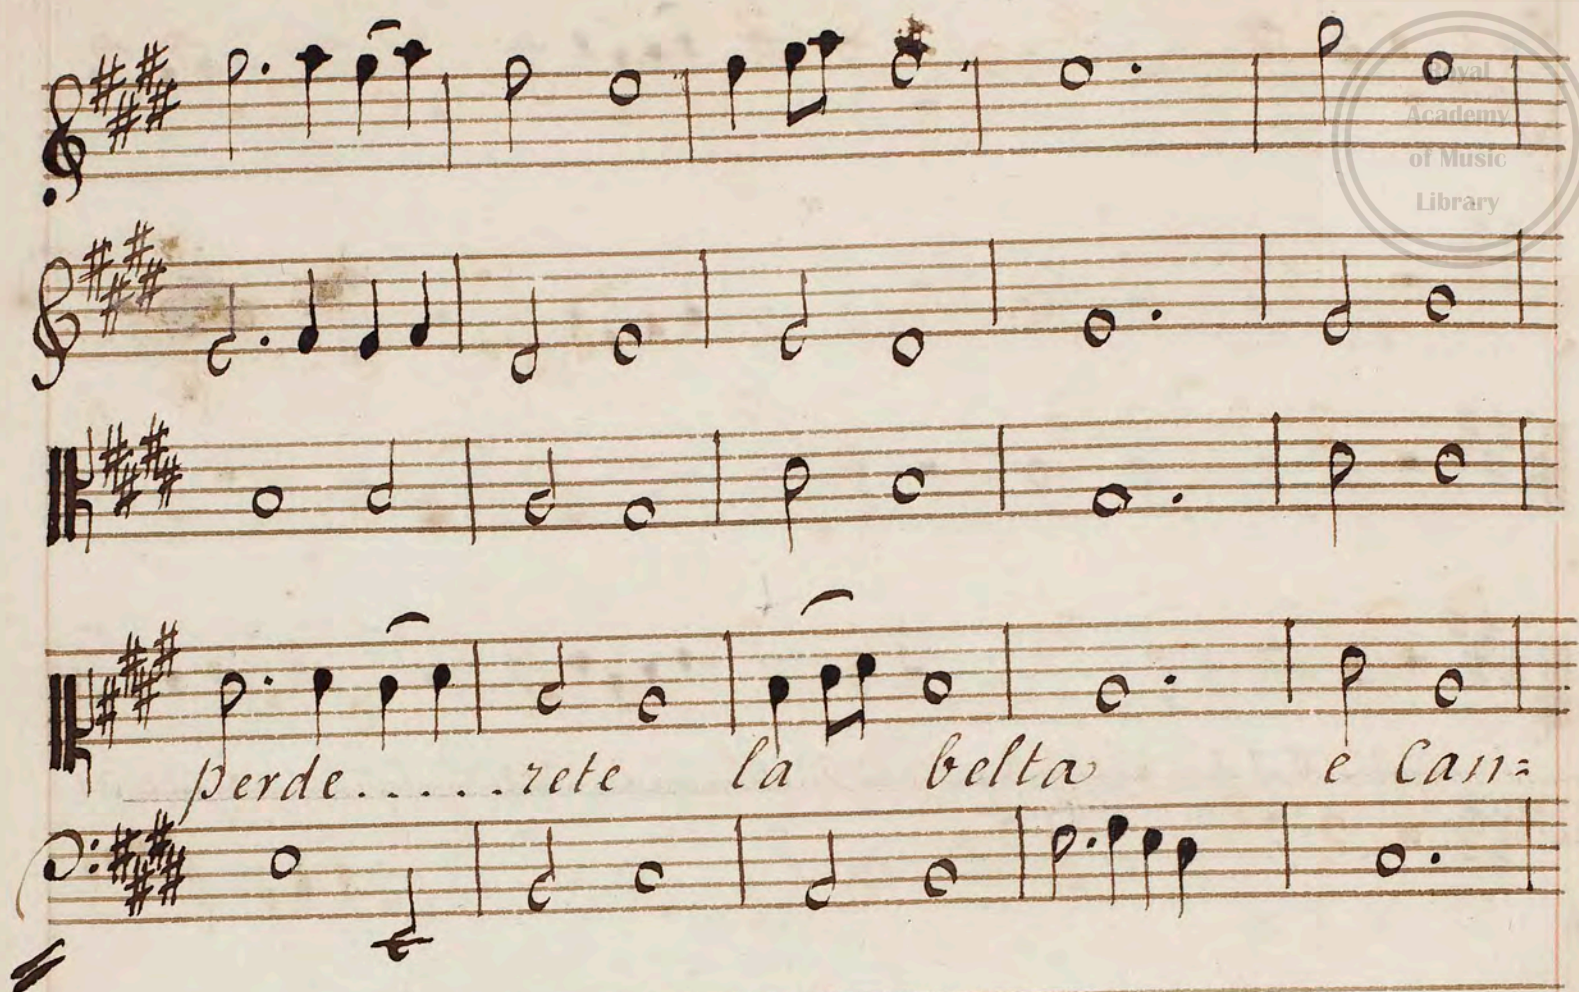 Royal
Academy
of Music
Library
perde......rete la belta e Can=